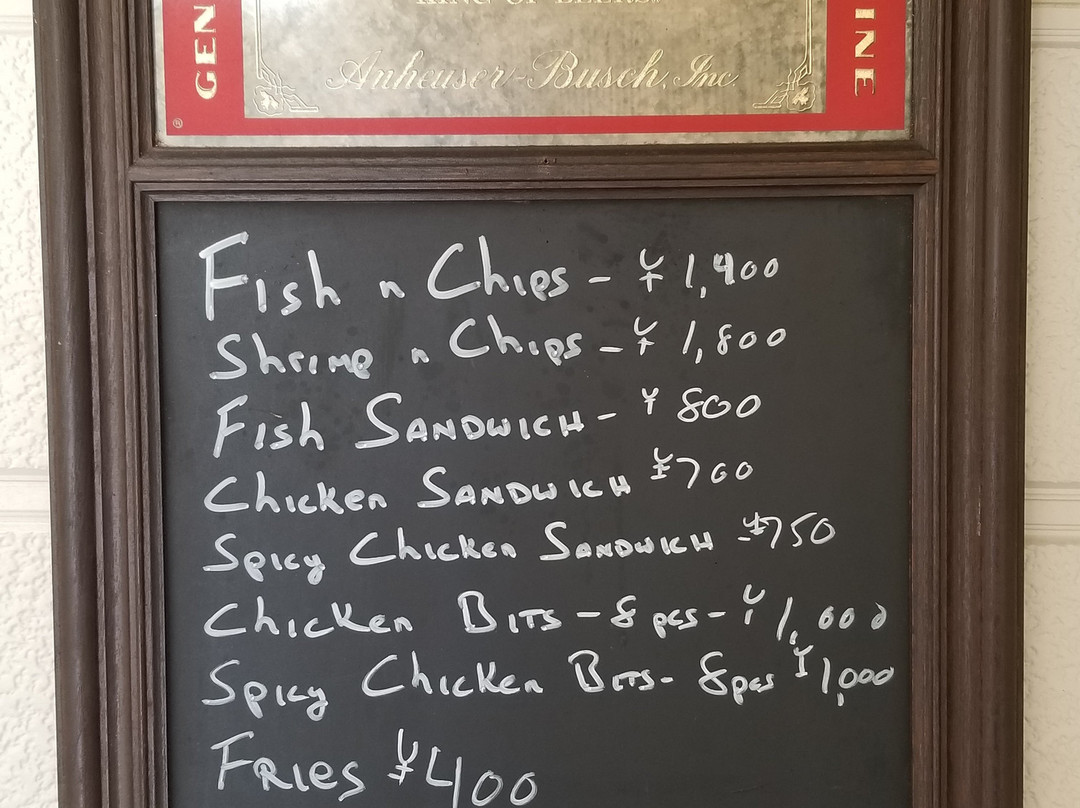 KING OF BEERS
GENUINE
Anheuser-Busch, Inc.
Fish n Chips - ¥1,400
Shrimp n Chips - ¥1,800
Fish SANDWICH - ¥800
Chicken SANDWICH ¥700
Spicy Chicken SANDWICH - ¥750
Chicken Bits - 8 pcs - ¥1,000
Spicy Chicken Bits - 8pcs ¥1,000
FRIES ¥400